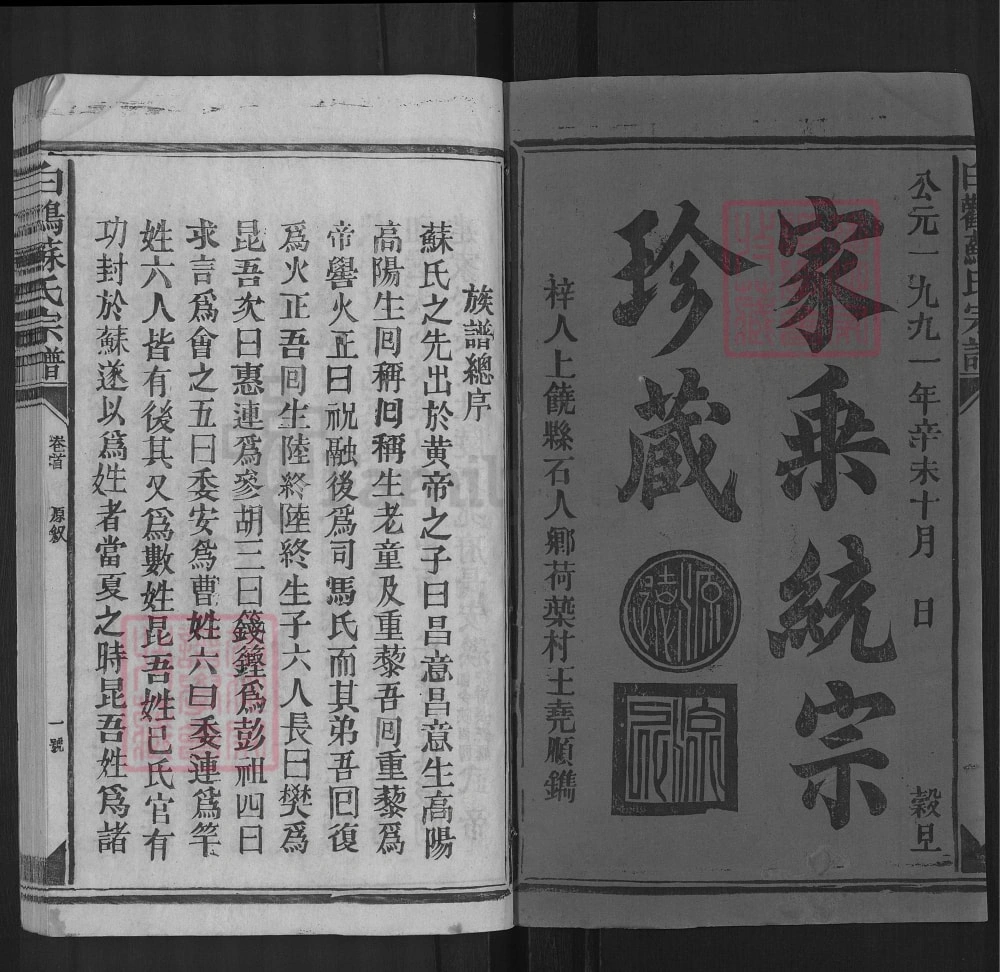 公元一九九一年辛未十月 日 穀旦
家乘統宗
珍藏
梓人上饒縣石人鄉荷葉村王堯順鐫
族譜總序
蘇氏之先出於黄帝之子曰昌意昌意生高陽
高陽生囘稱囘稱生老童及重藜吾囘重藜爲
帝嚳火正曰祝融後爲司馮氏而其弟吾囘復
爲火正吾囘生陸終陸終生子六人長曰樊爲
昆吾次曰惠連爲參胡三曰籛鏗爲彭祖四曰
求言爲會之五曰委安爲曹姓六曰委連爲芊
姓六人皆有後其又爲數姓昆吾姓已氏官有
功封於蘇遂以爲姓者當夏之時昆吾姓爲諸
白鶴蘇氏宗譜
卷首 原叙 一號